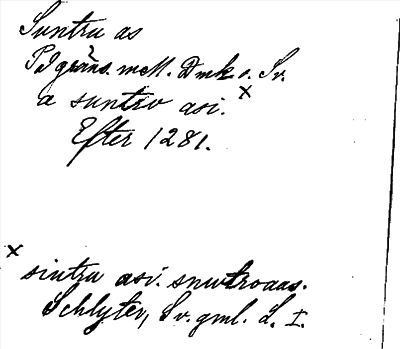 Suntru as
På gräns. mell. Dmk o. Sv.
a suntro asi. x
Efter 1281.
x sintru asi. snutroaas.
Schlyter, Sv. gml. L. I.